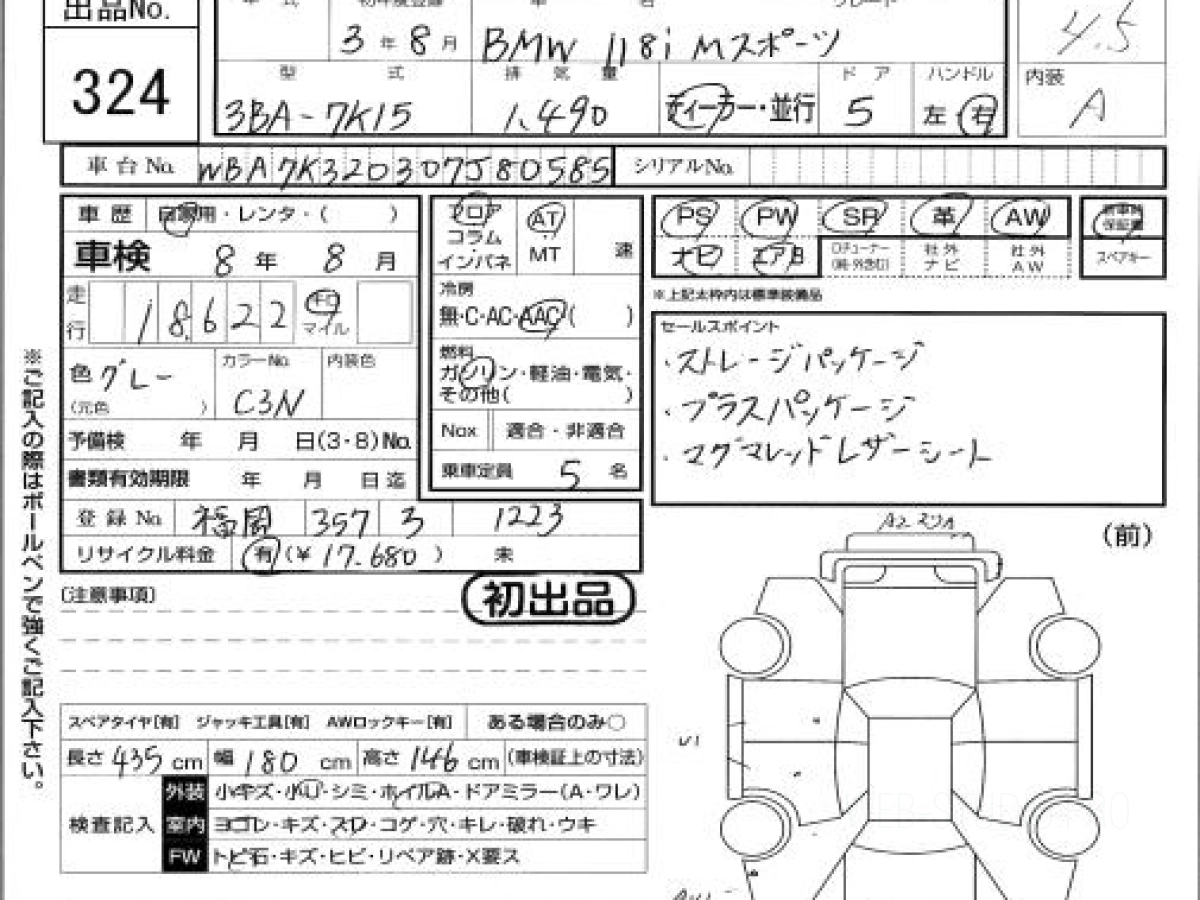 出品No.
324
年 式 初年度登録 車 名 グレード
3年8月 BMW 118i Mスポーツ
4.5
型 式 排 気 量 ドア ハンドル 内装
3BA-7K15 1.490 ディーラー・並行 5 左 右 A
車台No. WBA7K320307J80585 シリアルNo.
車歴 自家用・レンタ・( )
車検 8年 8月
走行 18,622 キロ マイル
色 グレー カラーNo. C3N 内装色
(元色 )
予備検 年 月 日(3・8)No.
書類有効期限 年 月 日迄
登録No. 福岡 357 3 1223
リサイクル料金 有(¥17.680) 未
フロア
コラム
インパネ
AT
MT
速
冷房
無・C・AC・AAC( )
燃料
ガソリン・軽油・電気・
その他( )
Nox 適合・非適合
乗車定員 5 名
PS PW SR 革 AW 新車時保証書
ナビ エアB ロチューナー 社外ナビ 社外AW スペアキー
※上記太枠内は標準装備品
セールスポイント
・ストレージパッケージ
・プラスパッケージ
・マグマレッドレザーシート
(前)
U1
※ご記入の際はボールペンで強くご記入下さい。
〔注意事項〕
初出品
スペアタイヤ[有] ジャッキ工具[有] AWロックキー[有] ある場合のみ○
長さ 435 cm 幅 180 cm 高さ 146 cm (車検証上の寸法)
検査記入
外装 小キズ・小凹・シミ・ホイルA・ドアミラー(A・ワレ)
室内 ヨゴレ・キズ・スレ・コゲ・穴・キレ・破れ・ウキ
FW トビ石・キズ・ヒビ・リペア跡・X要ス